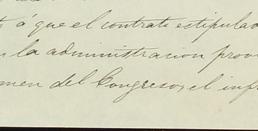 á que el contrato estipulado
la administracion prov
men del Congreso, el inf